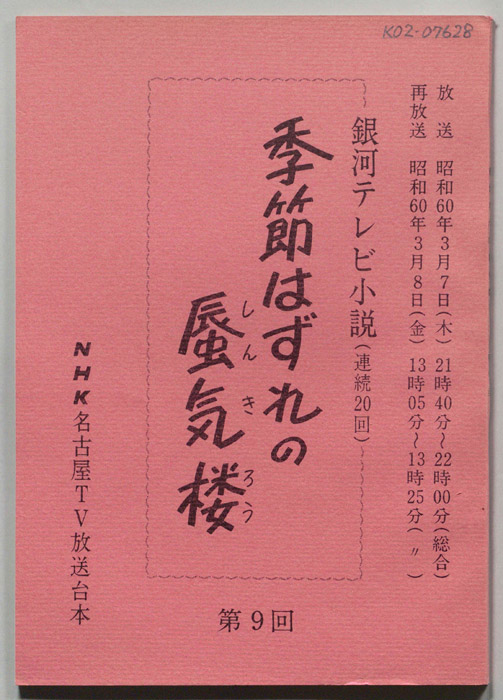 K02-07628
放送 昭和60年3月7日(木) 21時40分~22時00分(総合)
再放送 昭和60年3月8日(金) 13時05分~13時25分(〃)
銀河テレビ小説(連続20回)
季節はずれの
蜃気楼
しんきろう
第9回
NHK名古屋TV放送台本